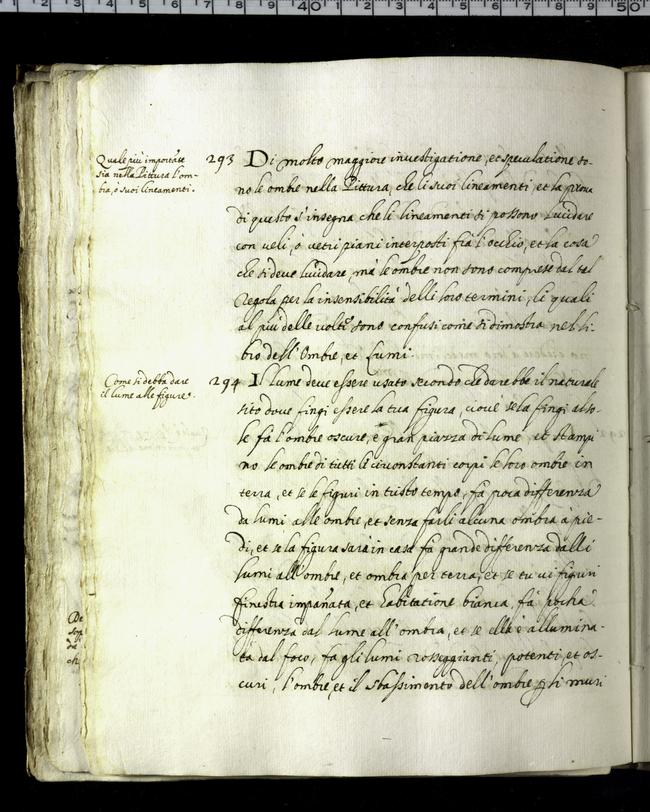 Quale più importãte
sia nella Pittura l'om-
bra, ò suoi lineamenti.
293 Di molto maggiore investigatione, et speculatione so-
no le ombre nella Pittura, che li suoi lineamenti, et la prova
di questo s'insegna che li lineamenti si possono lucidare
con veli, ò vetri piani interposti frà l'occhio, et la cosa
che si deve lucidare, mà le ombre non sono comprese dal tal
regola per la insensibilità delli loro termini, li quali
al più delle volte sono confusi come si dimostra nel li-
bro dell'Ombre, et Lumi.
Come si debba dare
il lume alle figure.
294 Il lume deve essere usato secondo che darebbe il naturale
sito dove fingi essere la tua figura, cioè se la fingi al so-
le fà l'ombre oscure, e gran piazza di lume, et stampi
no le ombre di tutti li circonstanti corpi le loro ombre in
terra, et se le figuri in tristo tempo, fà poca differenza
da lumi alle ombre, et senza farli alcuna ombra à pie-
di, et se la figura sarà in casa fà grande differenza dalli
lumi all'ombre, et ombra per terra, et se tu vi figuri
finestra impañata, et habitatione bianca, fà pocha
differenza dal lume all'ombra, et se ella è allumina-
ta dal foco, fà gli lumi rosseggianti, potenti, et os-
curi, l'ombre, et il sbassimento dell'ombre gli muri